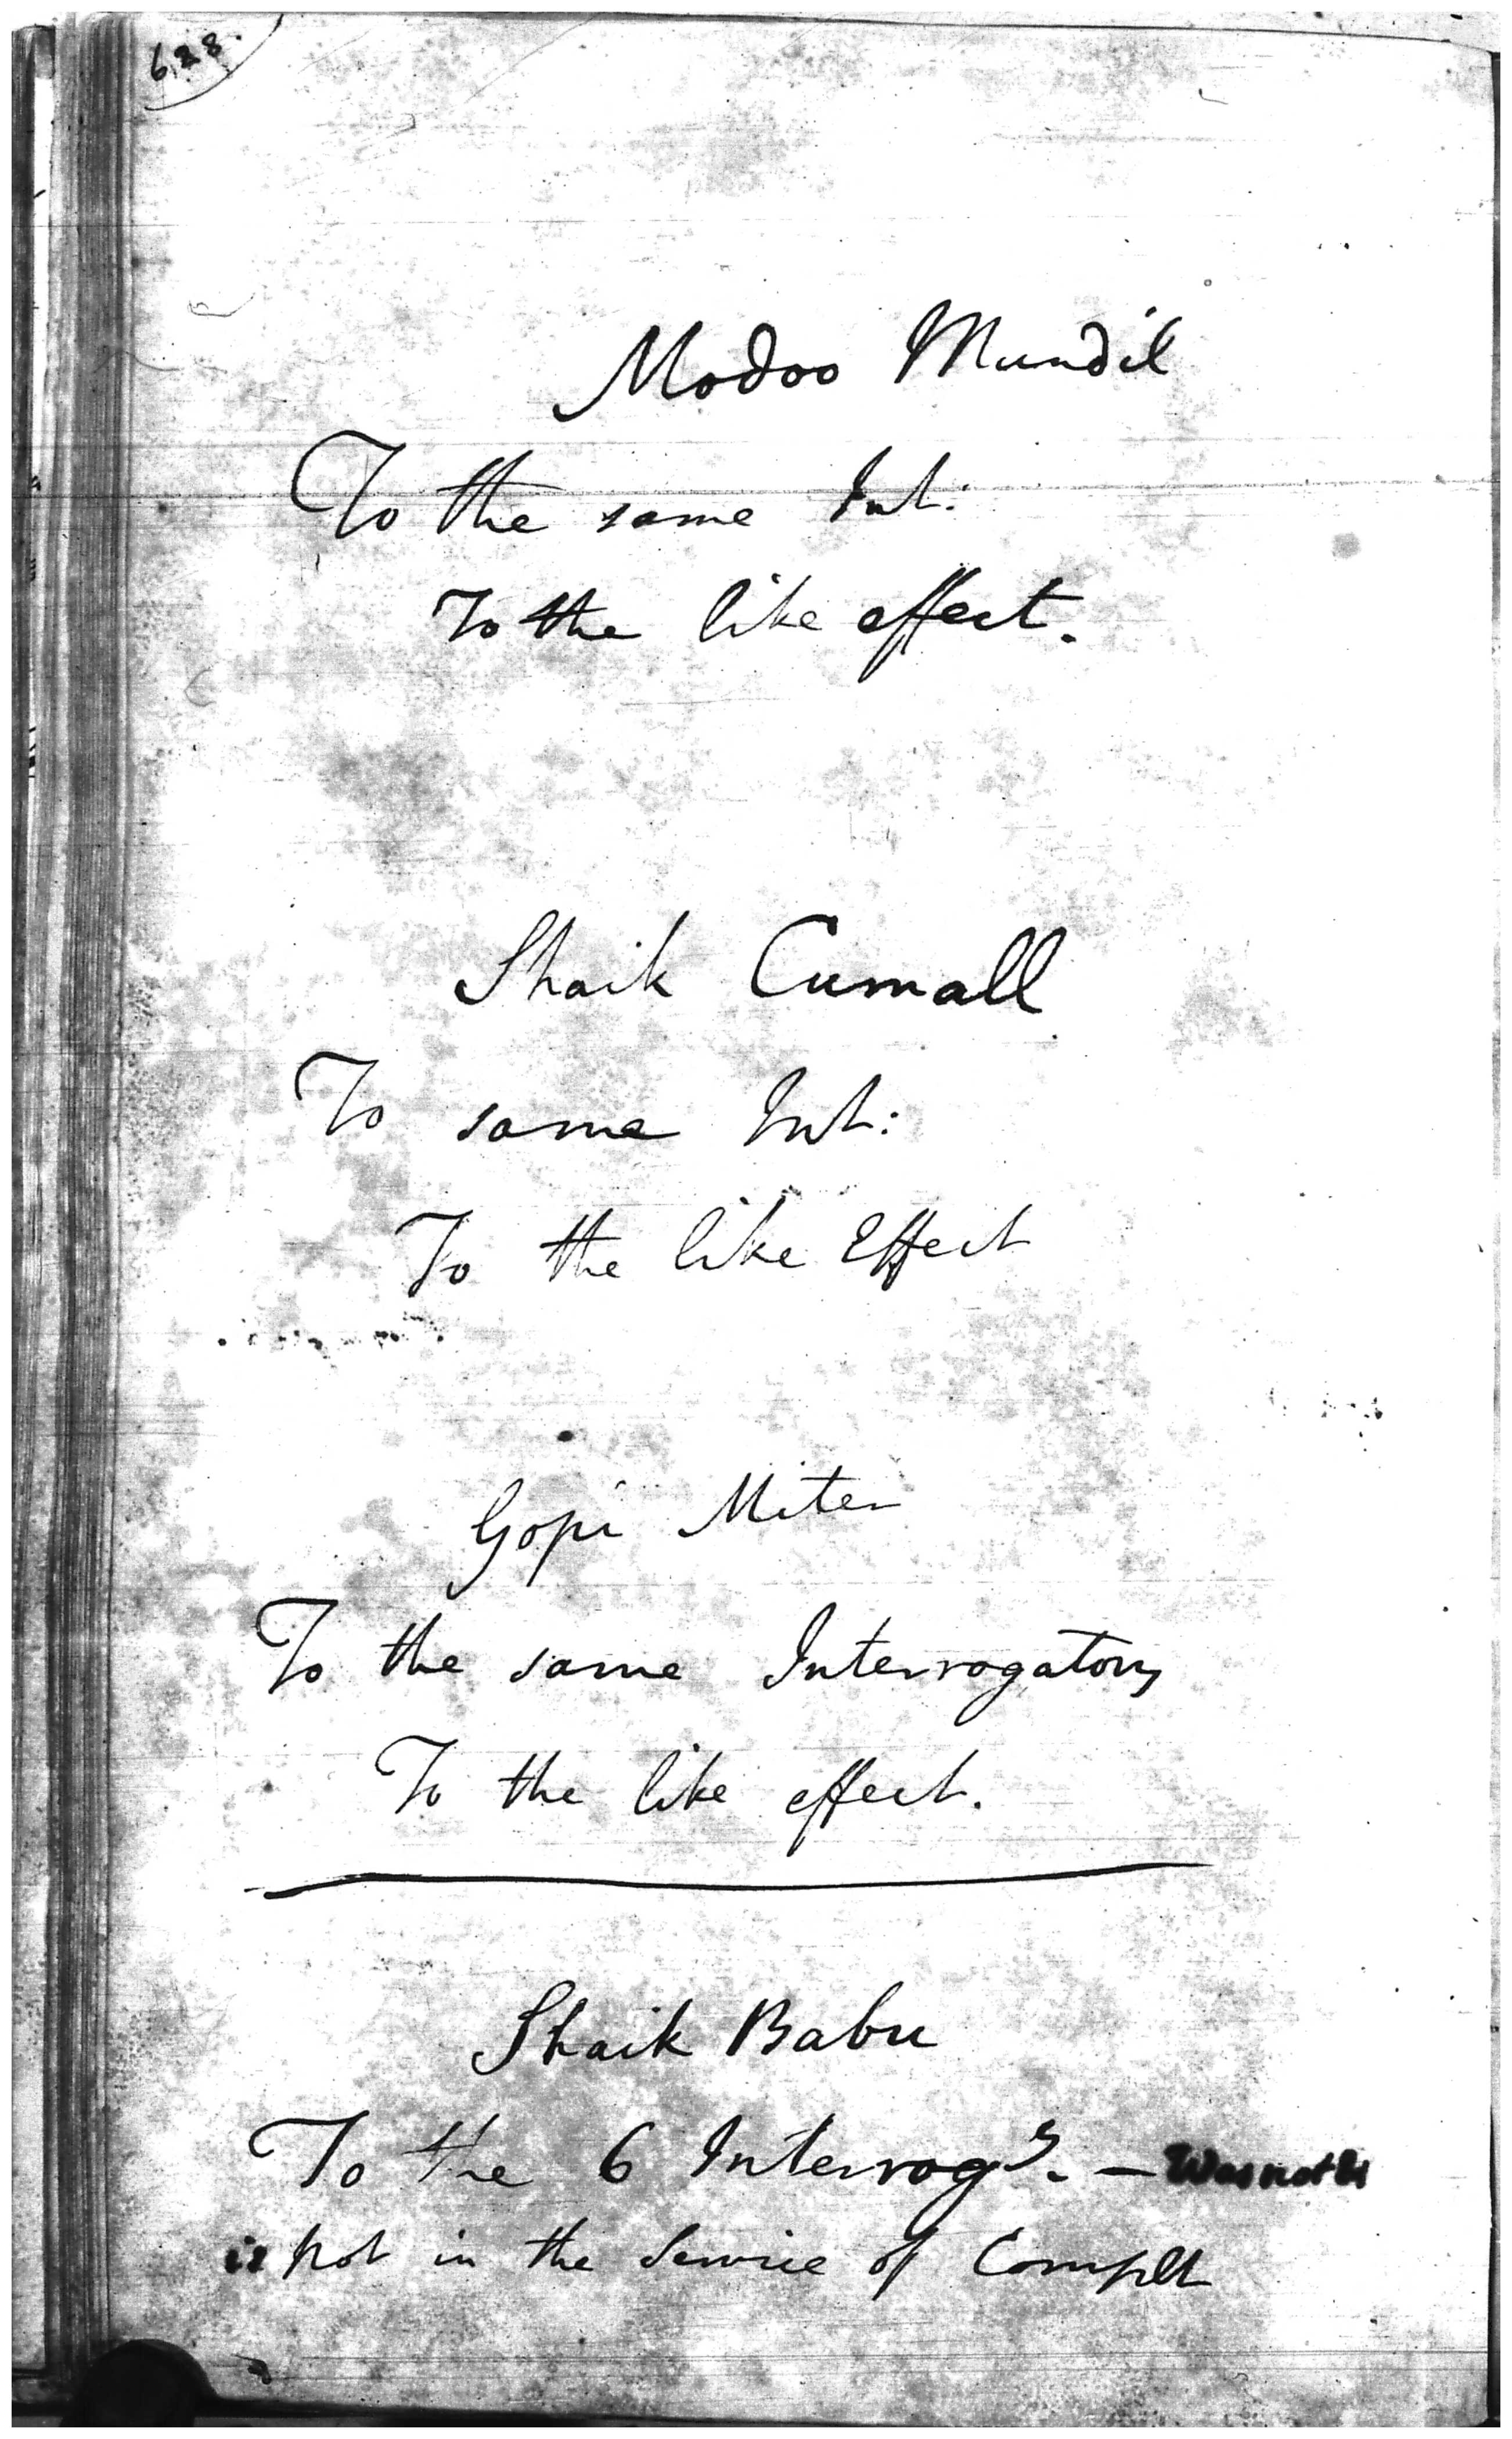 628.
Modoo Mundil
To the same Int:
To the like effect.
Shaik Cumall
To same Int:
To the like Effect
Gopi Miter
To the same Interrogatory
To the like effect.
Shaik Babu
To the 6 Interrogy. — Was not &
is not in the Service of Complt